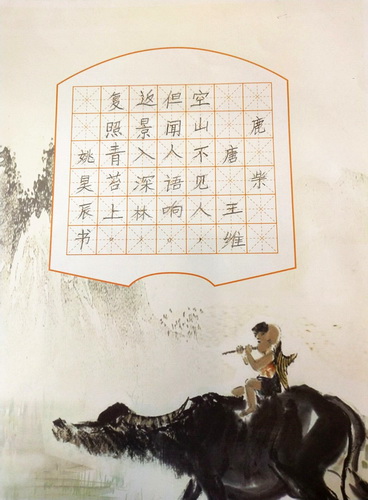 鹿柴
唐王维
空山不见人，
但闻人语响。
返景入深林，
复照青苔上。
姚昊辰书